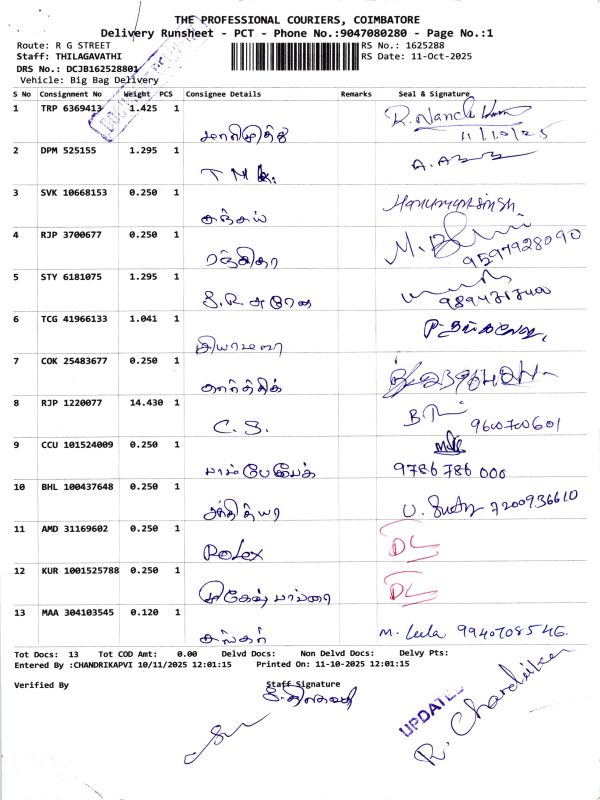 THE PROFESSIONAL COURIERS, COIMBATORE
Delivery Runsheet - PCT - Phone No.:9047080280 - Page No.:1
Route: R G STREET RS No.: 1625288
Staff: THILAGAVATHI RS Date: 11-Oct-2025
DRS No.: DCJB162528801
Vehicle: Big Bag Delivery
S No Consignment No Weight PCS Consignee Details Remarks Seal & Signature
1 TRP 6369413 1.425 1
11/10/25
2 DPM 525155 1.295 1
TMK.
3 SVK 10668153 0.250 1 Hanumansinsh
சஞ்சய்
4 RJP 3700677 0.250 1
ரஞ்சிதா 9597928090
5 STY 6181075 1.295 1
6 TCG 41966133 1.041 1
7 COK 25483677 0.250 1
கார்த்திக்
8 RJP 1220077 14.430 1
C. S. 9600700601
9 CCU 101524009 0.250 1
9786 786 000
10 BHL 100437648 0.250 1 7200936610
11 AMD 31169602 0.250 1 DL
Rolex
12 KUR 1001525788 0.250 1 DL
13 MAA 304103545 0.120 1 M. Leela 9940708546
சங்கர்
Tot Docs: 13 Tot COD Amt: 0.00 Delvd Docs: Non Delvd Docs: Delvy Pts:
Entered By :CHANDRIKAPVI 10/11/2025 12:01:15 Printed On: 11-10-2025 12:01:15
Verified By Staff Signature
UPDATED
R. Chandrika